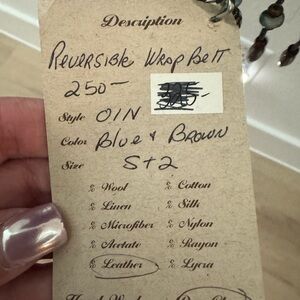 Description
Reversible Wrap Belt
250-
Style OIN
Color Blue & Brown
Size S+2
Wool Cotton
Linen Silk
Microfiber Nylon
Acetate Rayon
Leather Lycra